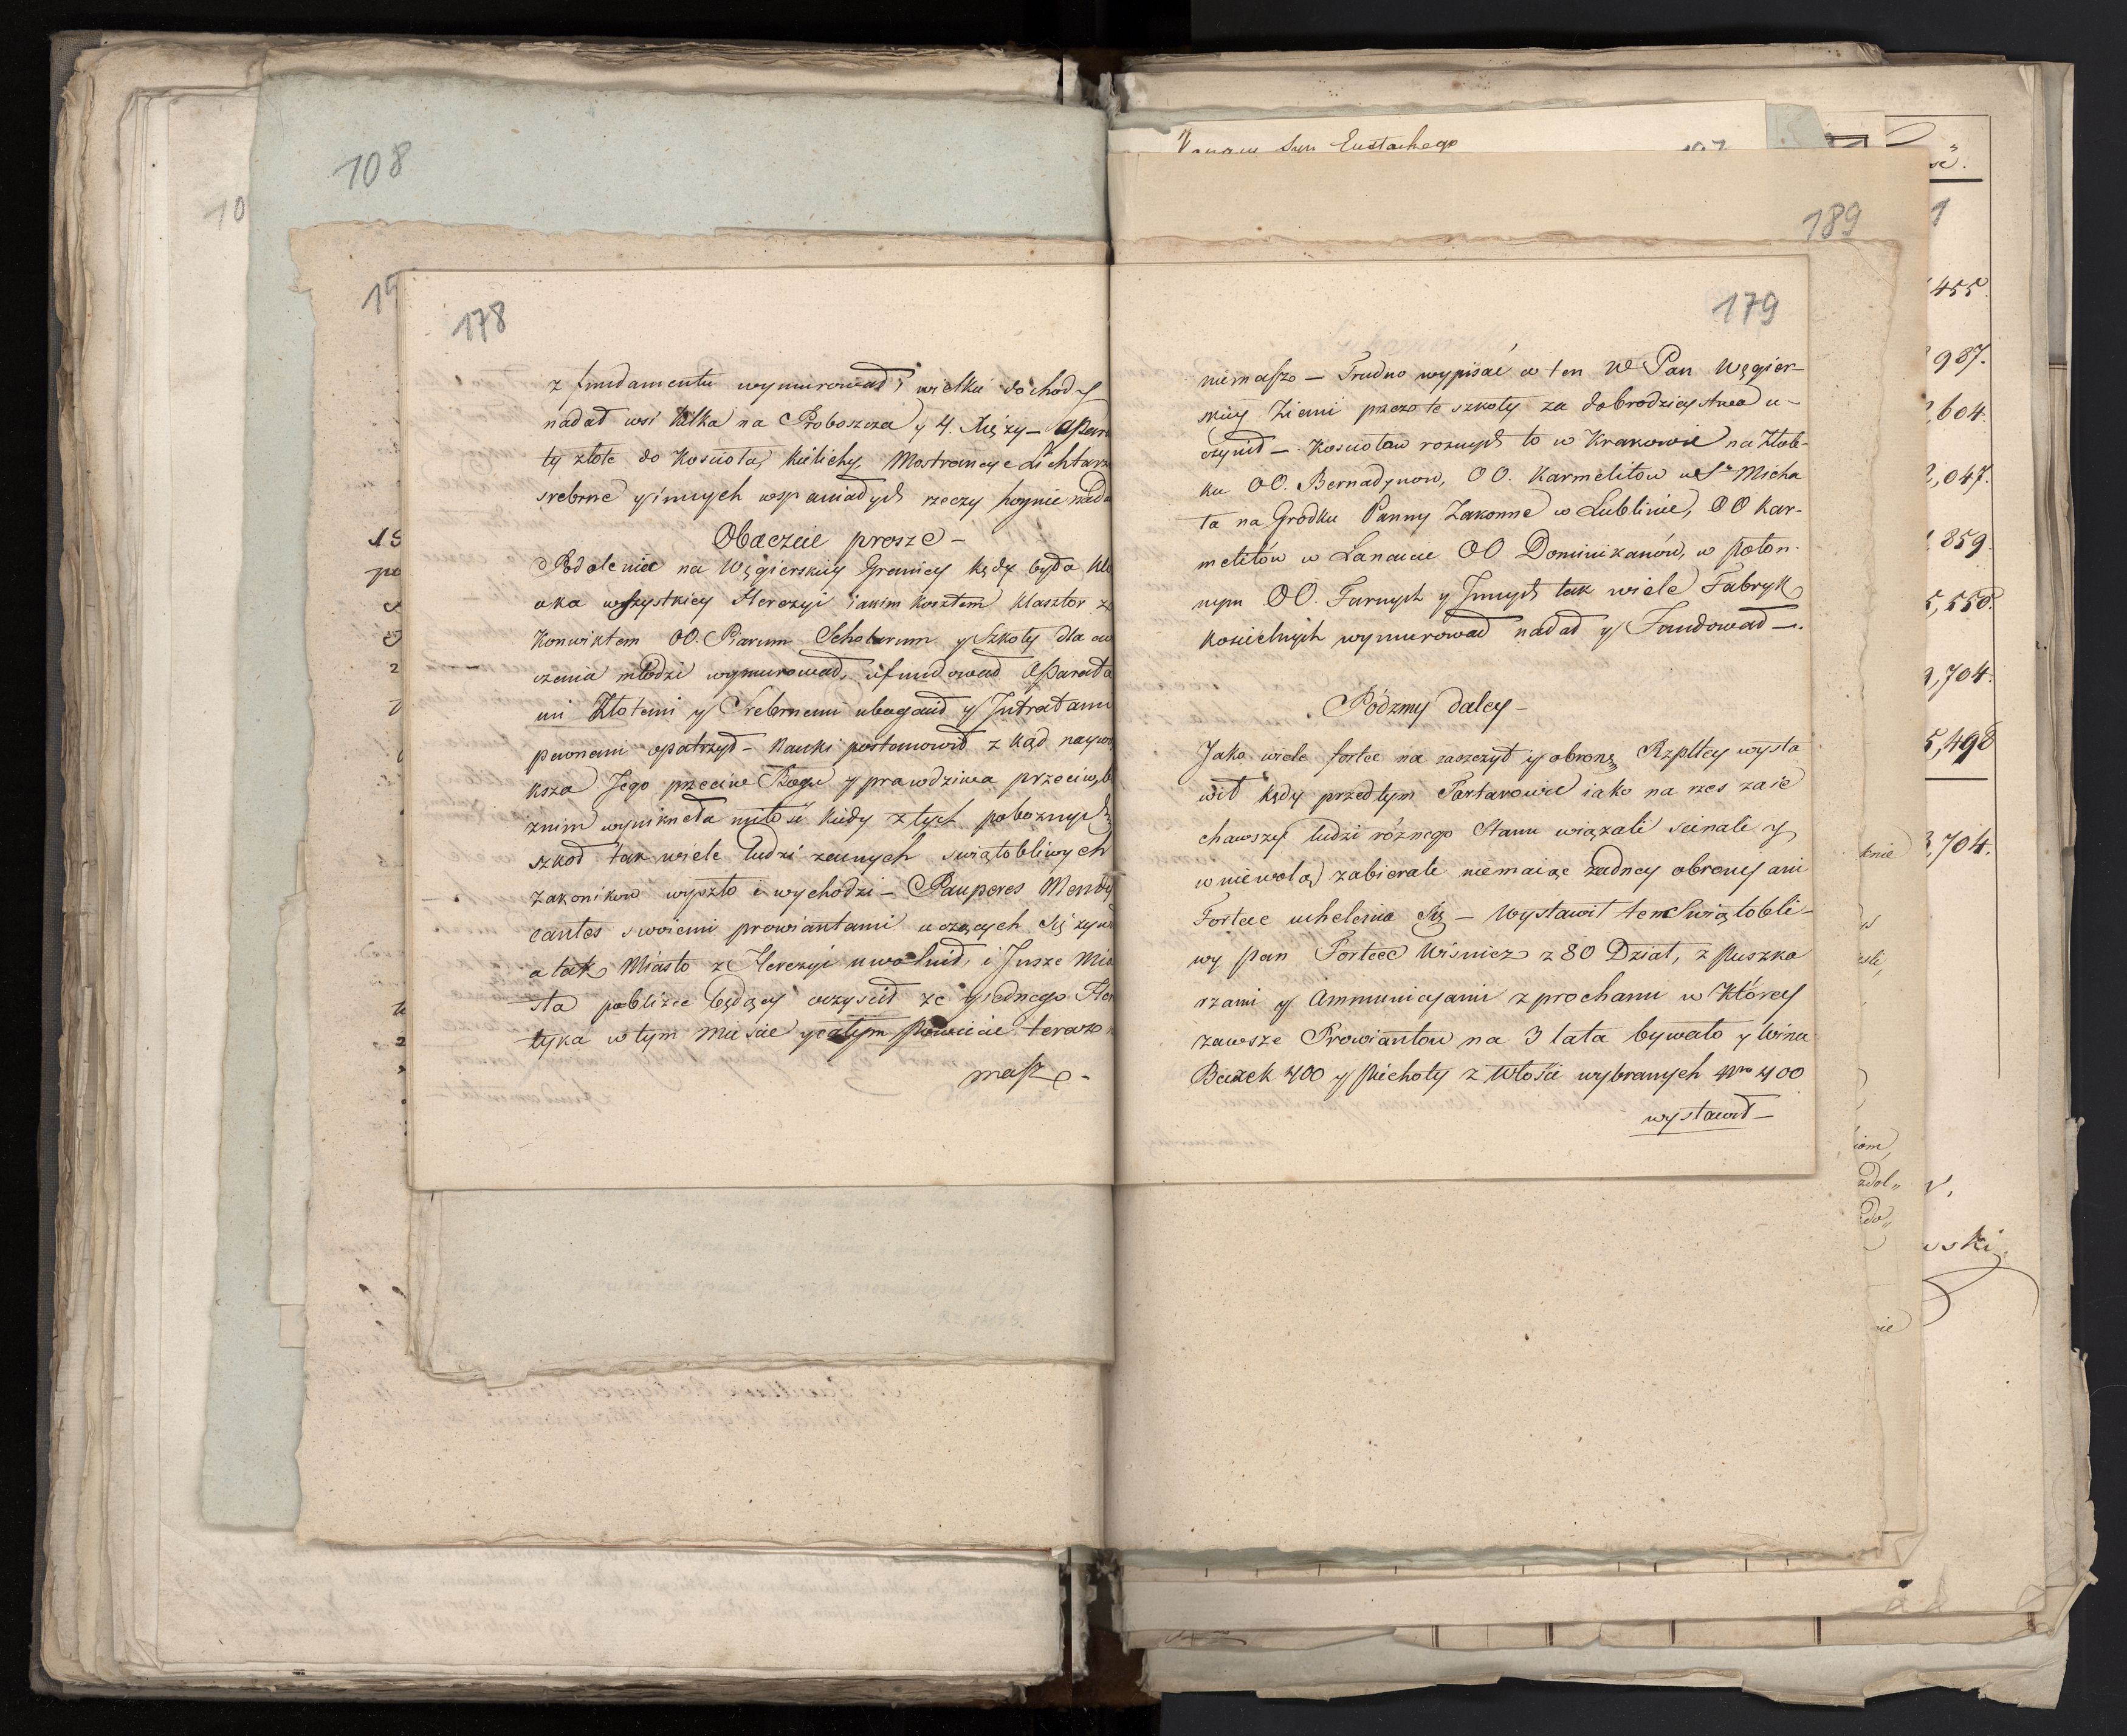 108
10
15
178
z fundamentu wymurował i wielkie dochody
nadał wsi kilka na Proboszcza y 4. Xięży — Apara
ty złote do Kościoła, kielichy, Monstrancye Lichtarze
srebrne y innych wspaniałych rzeczy hoynie nada
Obaczcie prosze —
Podolenia na Węgierskiey Granicy kędy była klo
aka wszystkiey Herezyi iakim kosztem Klasztor z
Konwiktem OO. Piarum Scholarum y Szkoły dla ow
czenia młodzi wymurował, ufundował Aparata
mi Złotemi y Srebrnemi ubogacił y Jntratami
pewnemi opatrzył — Nauki postanowił z kąd naywię
ksza Jego przeciw Bogu y prawdziwa przeciw bli
znim wyniknęła miłość kiedy z tych pobożnych
szkoł tak wiele ludzi zacnych swiątobliwych
zakonikow wyszło i wychodzi — Pauperes Mendy
cantes swoiemi prowiantami uczących się żywi
a tak Miasto z Herezyi uwolnił, i Jnsze Mia
sta poblizie będący oczyscił ze y iednego Here
tyka w tym miescie y całym Powiecie teraz n
masz —
Eustachego
189
179
niemasz — Trudno wypisać co ten W Pan Węgier-
skiey Ziemi przez te szkoły za dobrodzieystwa u-
czynił — Kosciołow roznych to w Krakowie na Złob-
ku OO. Bernadynow, OO. Karmelitow u Sgo Micha
ła na Grodku Panny Zakonne w Lublinie, OO Kar-
melitów w Łancucie OO Dominikanów, w połon-
nym OO. Farnych y Jnnych tak wiele Fabryk
koscielnych wymurował nadał y Fundował —.
Pódzmy daley —
Jako wiele fortec na zaszczyt y obronę Rzpltey wysta
wił kędy przedtym Tartarowie iako na rzes zaie
chawszy ludzi różnego Stanu wiązali scinali y
w niewolą zabierali niemaiąc żadney obrony ani
Fortec uchelenia się — Wystawił ten Swiątobli-
wy pan Fortecę Wisnicz z 80 Dział, z puszka
rzami y Ammunicyami z prochami w Którey
zawsze Prowiantow na 3 lata bywało y Wina
Beczek 400 y piechoty z Włości wybranych Nro 400
wystawił —
455.
987.
604.
,047.
859.
5,550.
,704.
5,498
,704.
wski